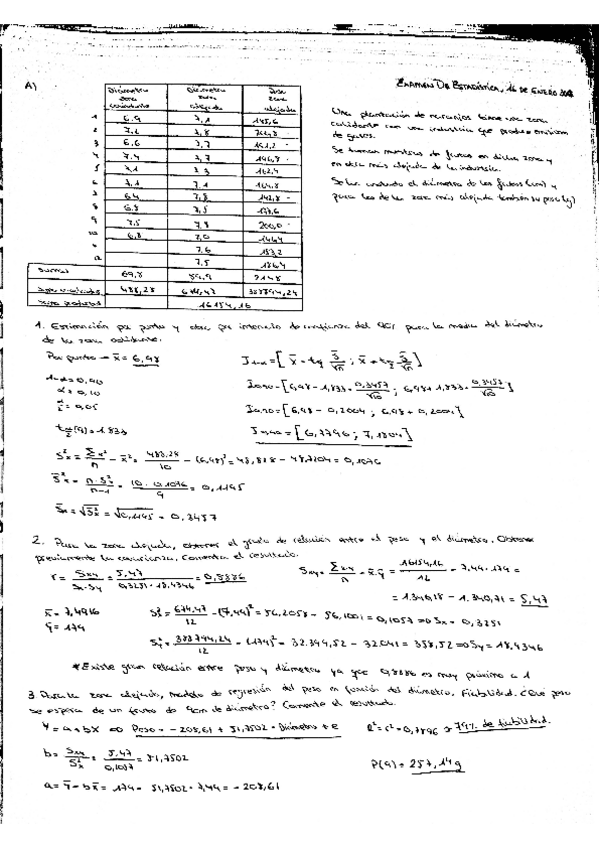 A)
EXAMEN DE ESTADÍSTICA, 16 DE ENERO
Diámetro zona colindante | Diámetro zona alejada | Peso zona alejada
1 6,9 7,1 145,6
2 7,2 7,8
3 6,6 7,7
4 7,4 7,7 196,8
5 7,1 7,3 162,4
6 7,1 7,1 164,8
7 6,4 7,8
8 6,8 7,5
9 7,5 7,8 200,0
10 6,8 7,0 146,4
7,6 153,2
12 7,5 186,4
Sumas 69,8 89,9 2148
488,28 674,47 388794,24
16154,16
Una plantación de naranjos tiene una zona
colindante con una industria que produce emisiones
de gases.
Se toman muestras de frutos en dicha zona y
en otra más alejada de la industria.
Se han anotado el diámetro de los frutos (cm) y
para los de la zona más alejada también su peso (g)
1. Estimación por punto y otra por intervalo de confianza del 90% para la media del diámetro
de la zona colindante.
Por punto → x̄ = 6,98
1-α = 0,90
α = 0,10
α/2 = 0,05
t α/2 (9) = 1,833
I 1-α = [x̄ - t α/2 S̄/√n ; x̄ + t α/2 S̄/√n]
I 0,90 = [6,98 - 1,833 · 0,3457/√10 ; 6,98 + 1,833 · 0,3457/√10]
I 0,90 = [6,98 - 0,2004 ; 6,98 + 0,2004]
I 0,90 = [6,7796 ; 7,1804]
S²x = Σx²/n - x̄² = 488,28/10 - (6,98)² = 48,828 - 48,7204 = 0,1076
S̄²x = n·S²x/n-1 = 10 · 0,1076/9 = 0,1195
S̄x = √S̄²x = √0,1195 = 0,3457
2. Para la zona alejada, obtener el grado de relación entre el peso y el diámetro. Obtener
previamente la covarianza. Comenta el resultado.
r = Sxy/Sx·Sy = 5,47/0,3251 · 18,9346 = 0,8886
Sxy = Σxy/n - x̄·ȳ = 16154,16/12 - 7,49 · 179 =
= 1.346,18 - 1.340,71 = 5,47
x̄ = 7,4916
ȳ = 179
S²x = 674,47/12 - (7,49)² = 56,2058 - 56,1001 = 0,1057 ⇒ Sx = 0,3251
S²y = 388794,24/12 - (179)² = 32.399,52 - 32.041 = 358,52 ⇒ Sy = 18,9346
* Existe gran relación entre peso y diámetro ya que 0,8886 es muy próximo a 1
3. Para la zona alejada, modelo de regresión del peso en función del diámetro. Fiabilidad. ¿Qué peso
se espera de un fruto de 9cm de diámetro? Comenta el resultado.
Y = a + bX ⇔ Peso = -208,61 + 51,7502 · Diámetro + e
R² = r² = 0,7896 → 79% de fiabilidad.
b = Sxy/S²x = 5,47/0,1057 = 51,7502
P(9) = 257,14g
a = ȳ - bx̄ = 179 - 51,7502 · 7,49 = -208,61